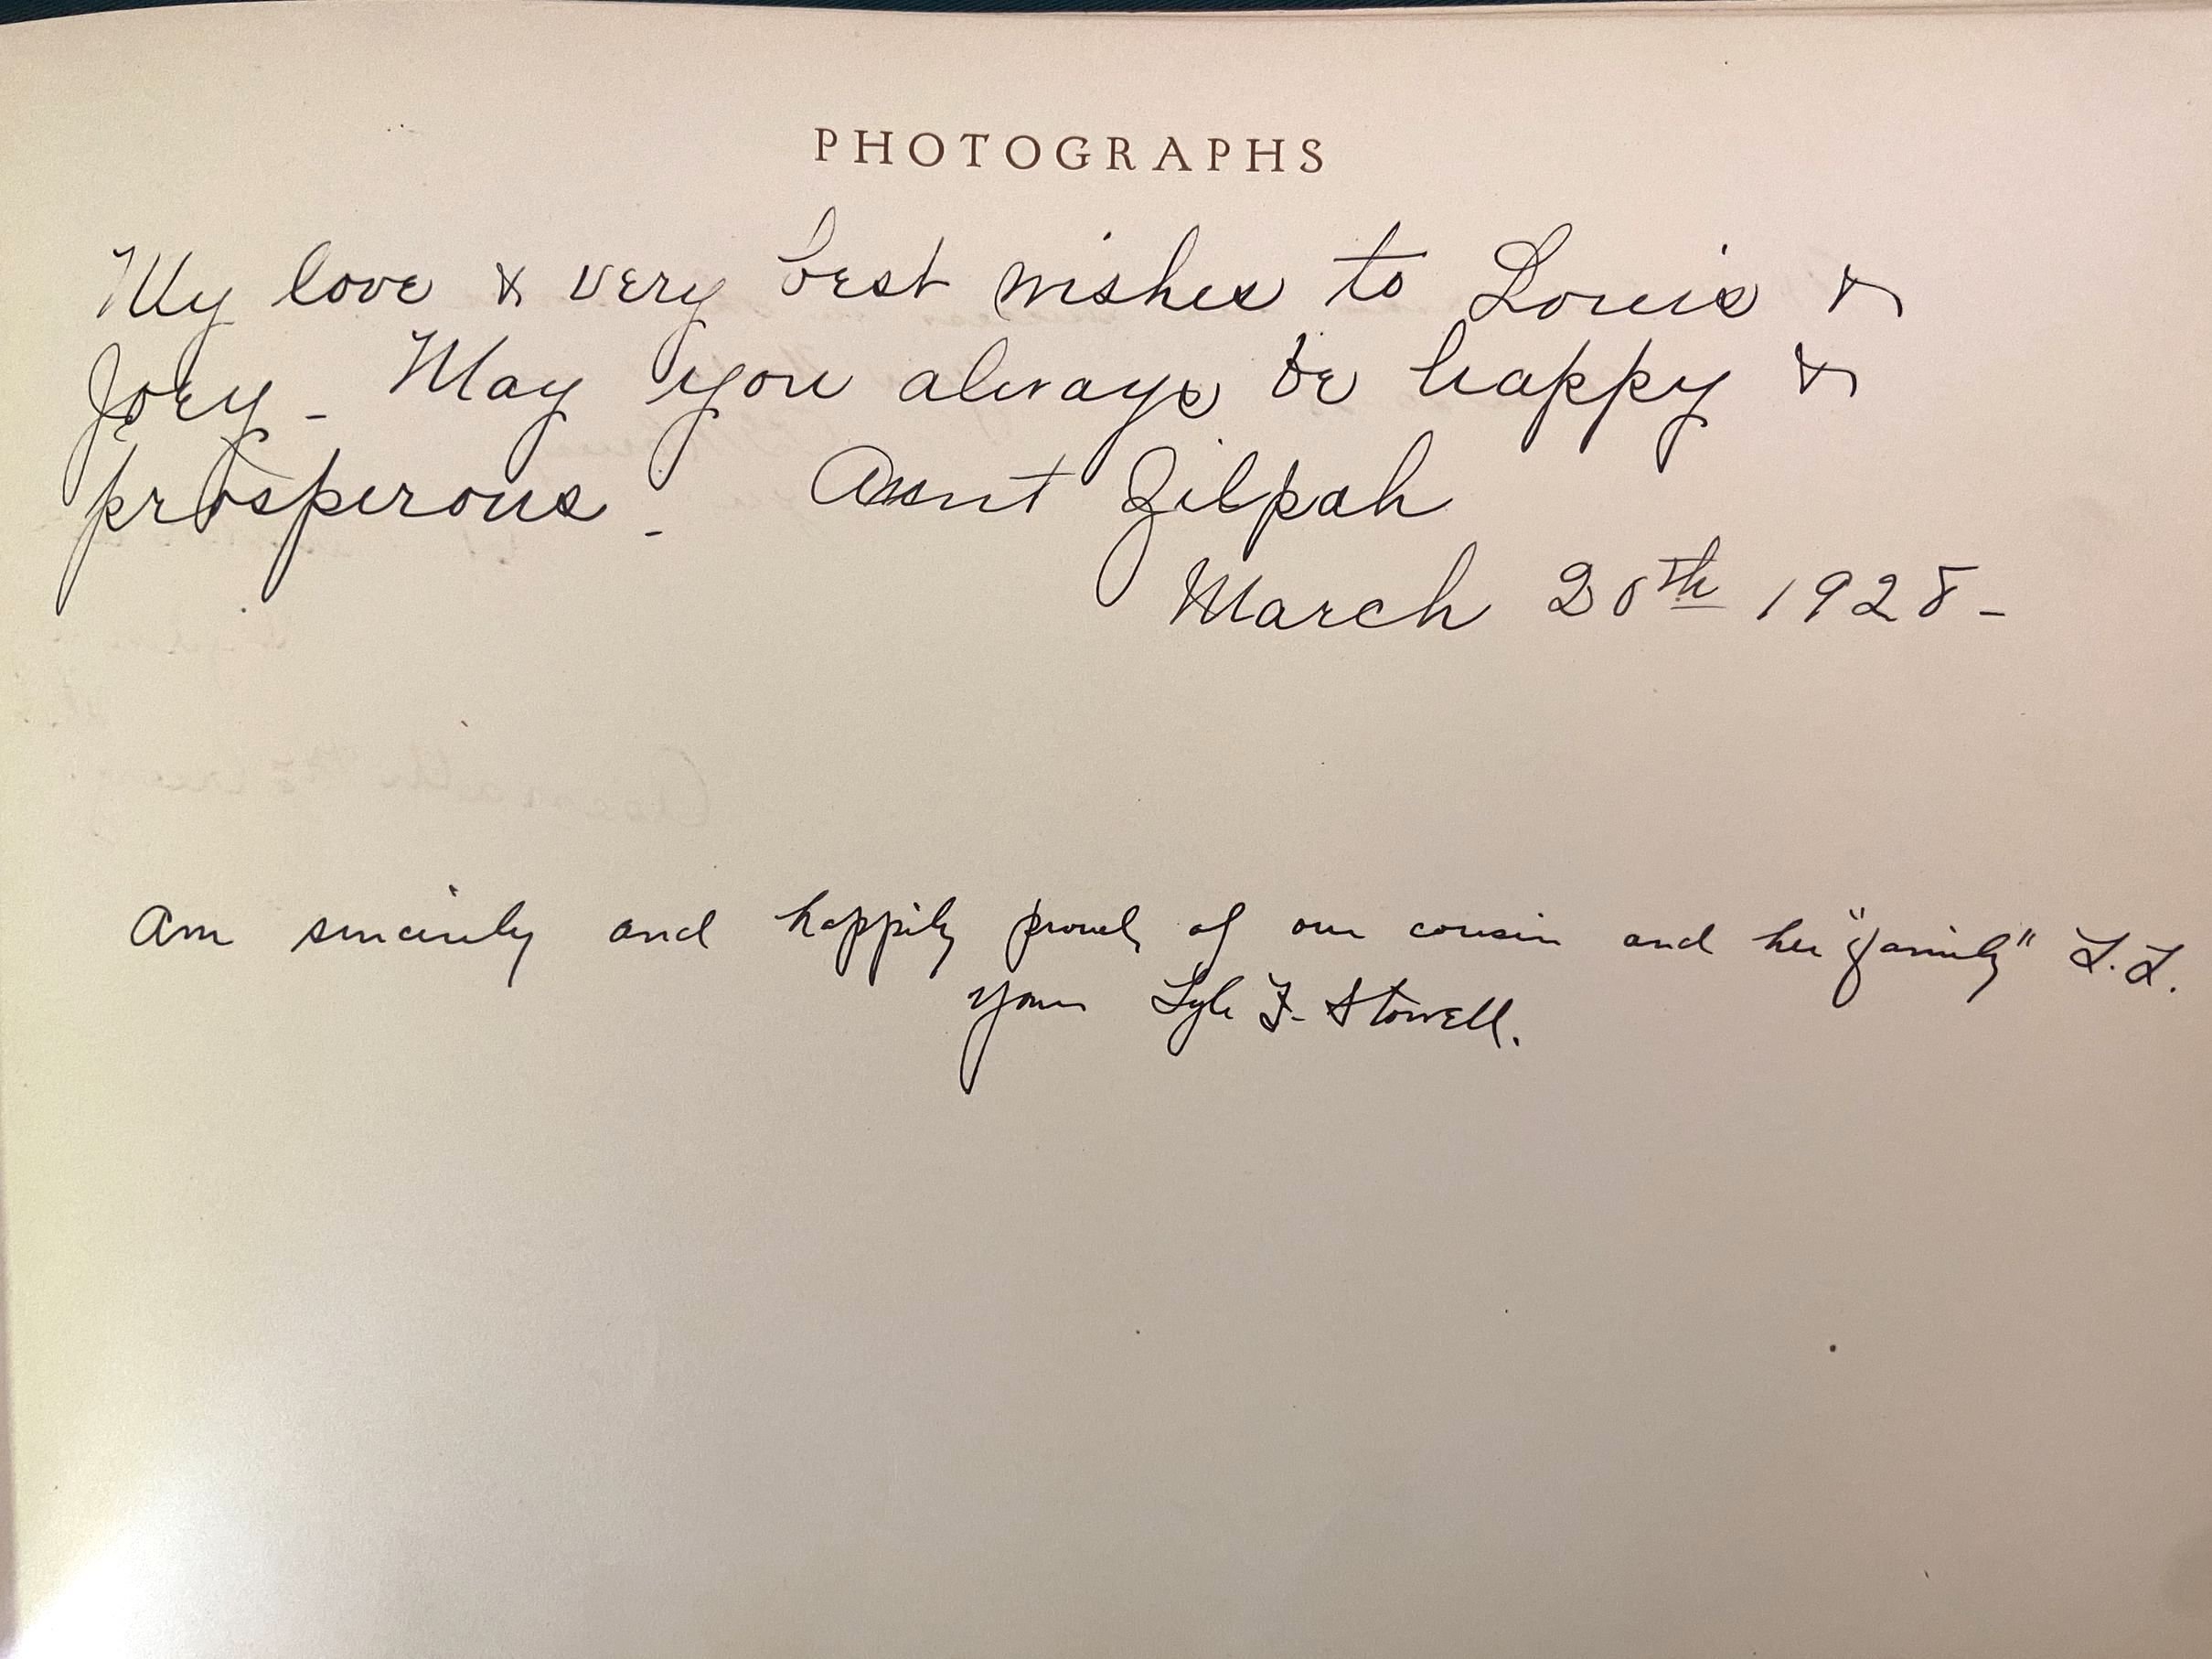 PHOTOGRAPHS
My love & very best wishes to Louis &
Joey - May you always be happy &
prosperous - Aunt Zilpah
March 20th 1928 -
Am sincerely and happily proud of our cousin and her "family" L.L.
Yours Lyle F. Stowell.